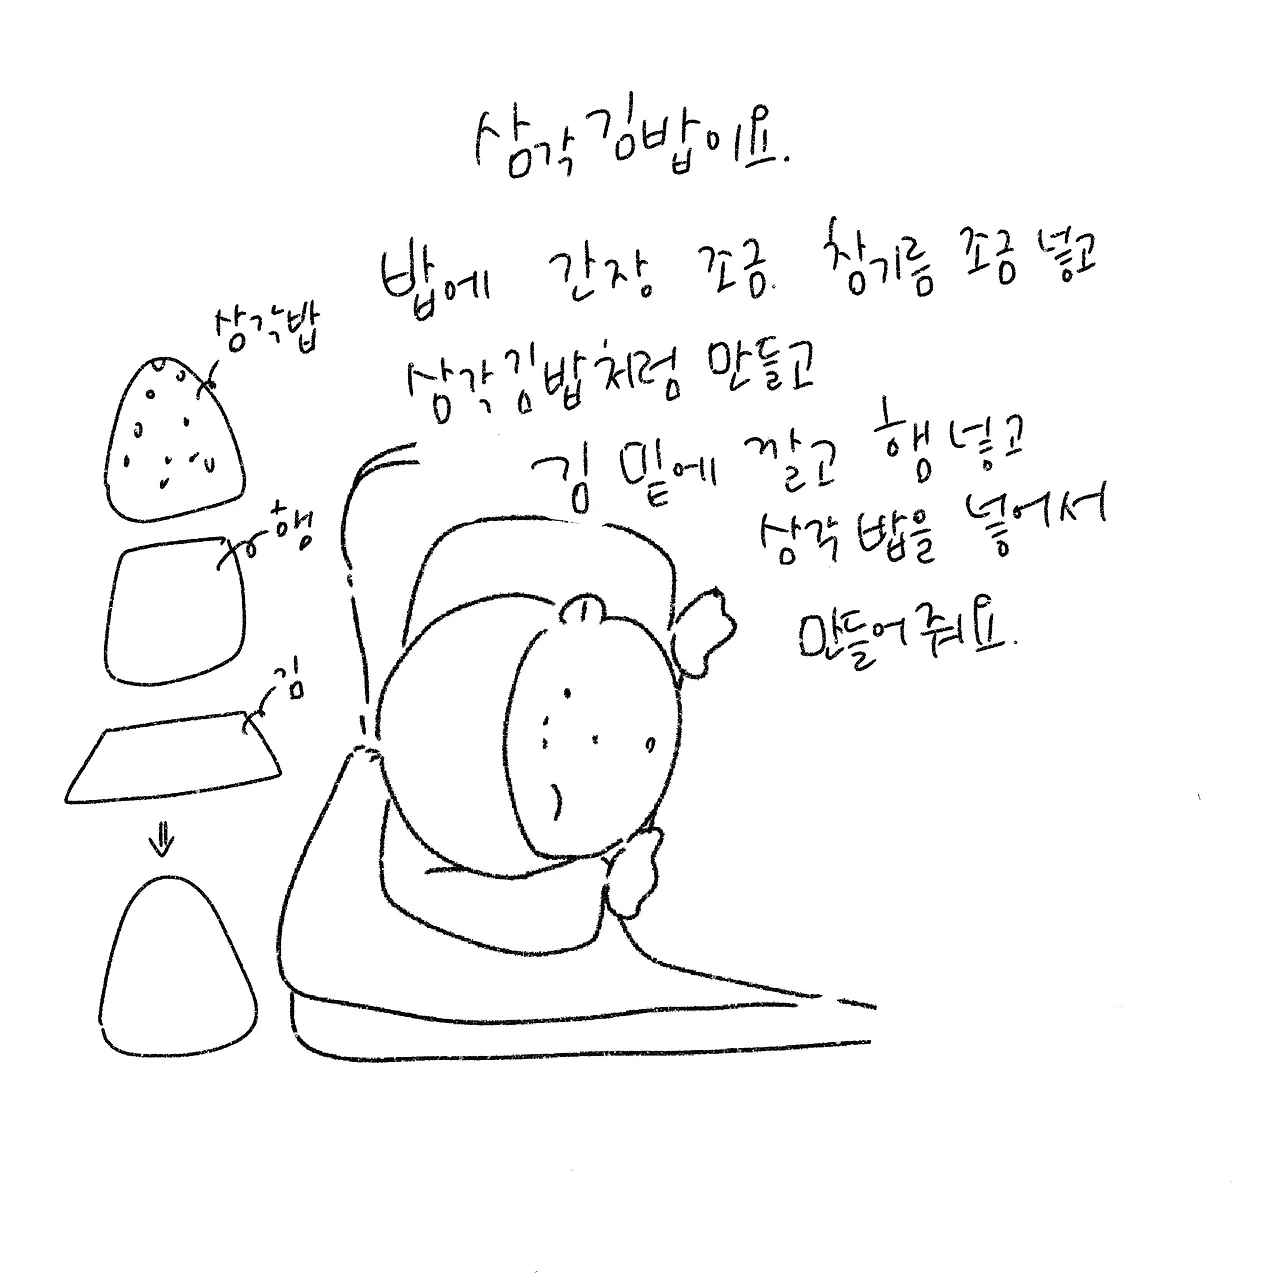 삼각김밥이요.
밥에 간장 조금. 참기름 조금 넣고
삼각김밥처럼 만들고
김 밑에 깔고 햄 넣고
삼각 밥을 넣어서
만들어줘요.
삼각밥
햄
김